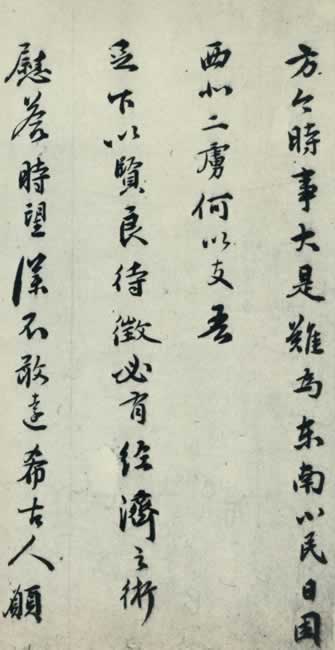 方今時事大是難為東南小民日困
西北二虜何以支吾
足下以賢良待徵必有經濟之術
慰答時望僕不敢遠希古人顧